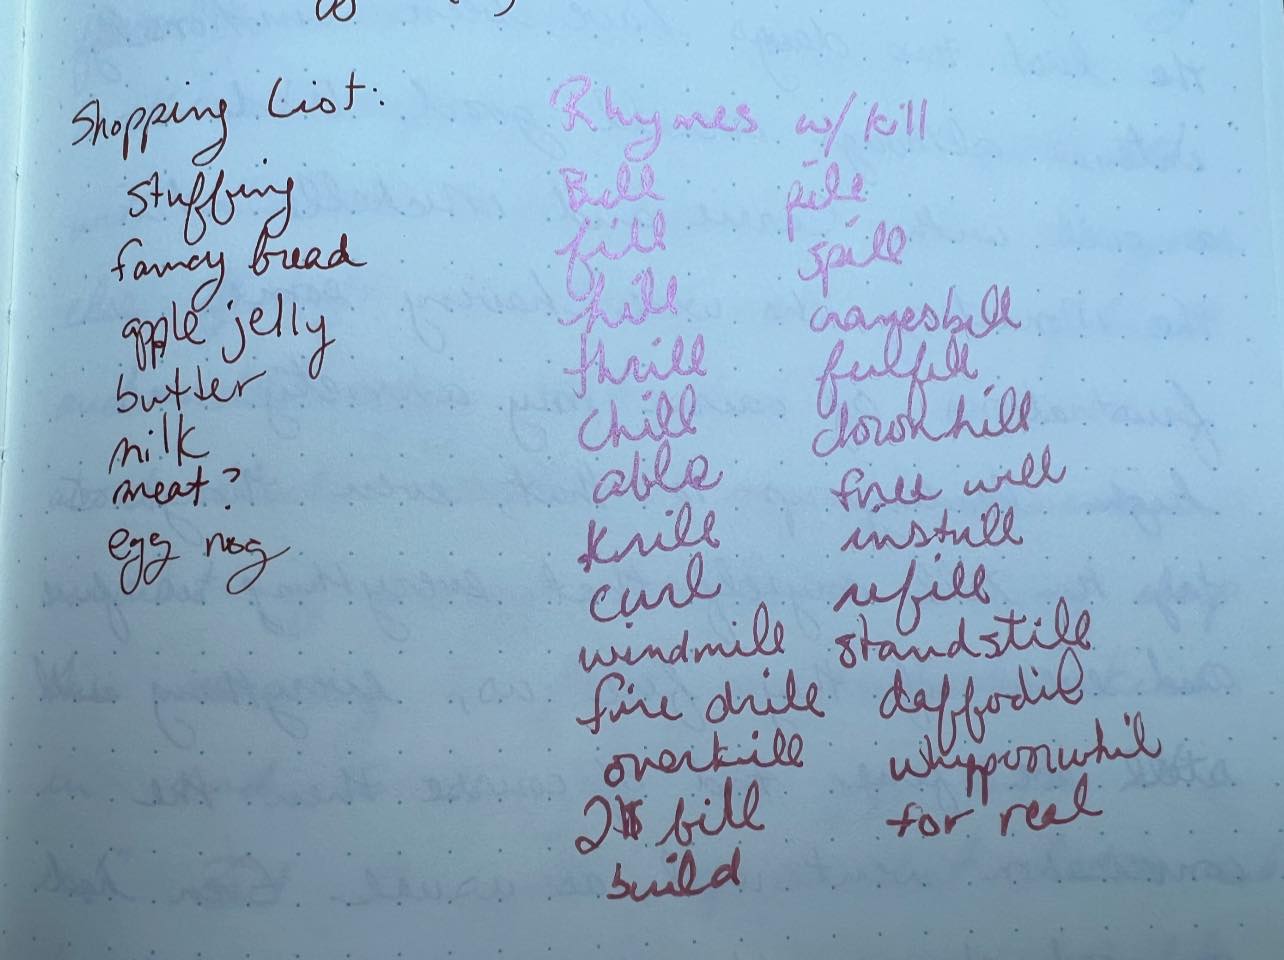 Shopping List:
stuffing
fancy bread
apple jelly
butter
milk
meat?
egg nog
Rhymes w/ kill
Bill
fill
hill
thrill
chill
able
krill
curl
windmill
fire drill
overkill
2$ bill
build
pill
spill
cranesbill
fulfill
downhill
free will
instill
refill
standstill
daffodil
whipporwhil
for real